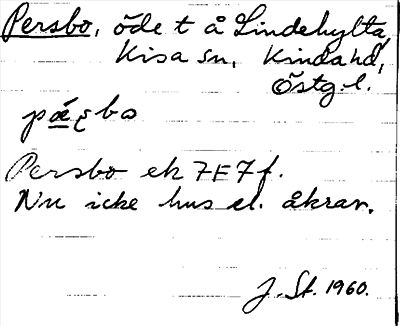 Persbo, öde t å Lindehylta,
Kisa sn, Kinda hd,
Östg. l.
pǽʂbo
Persbo ek 7F7f.
Nu icke hus el. åkrar.
J. St. 1960.